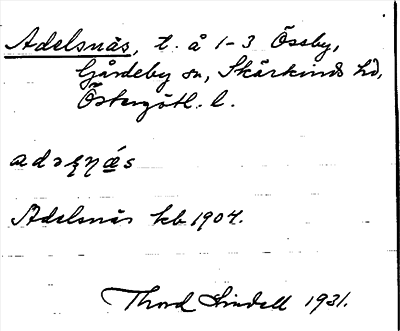 Adelsnäs, t. å 1-3 Össby,
Gårdeby sn, Skärkinds hd,
Östergötl. l.
Adelsnäs kb 1904.
Thord Lindell 1931.